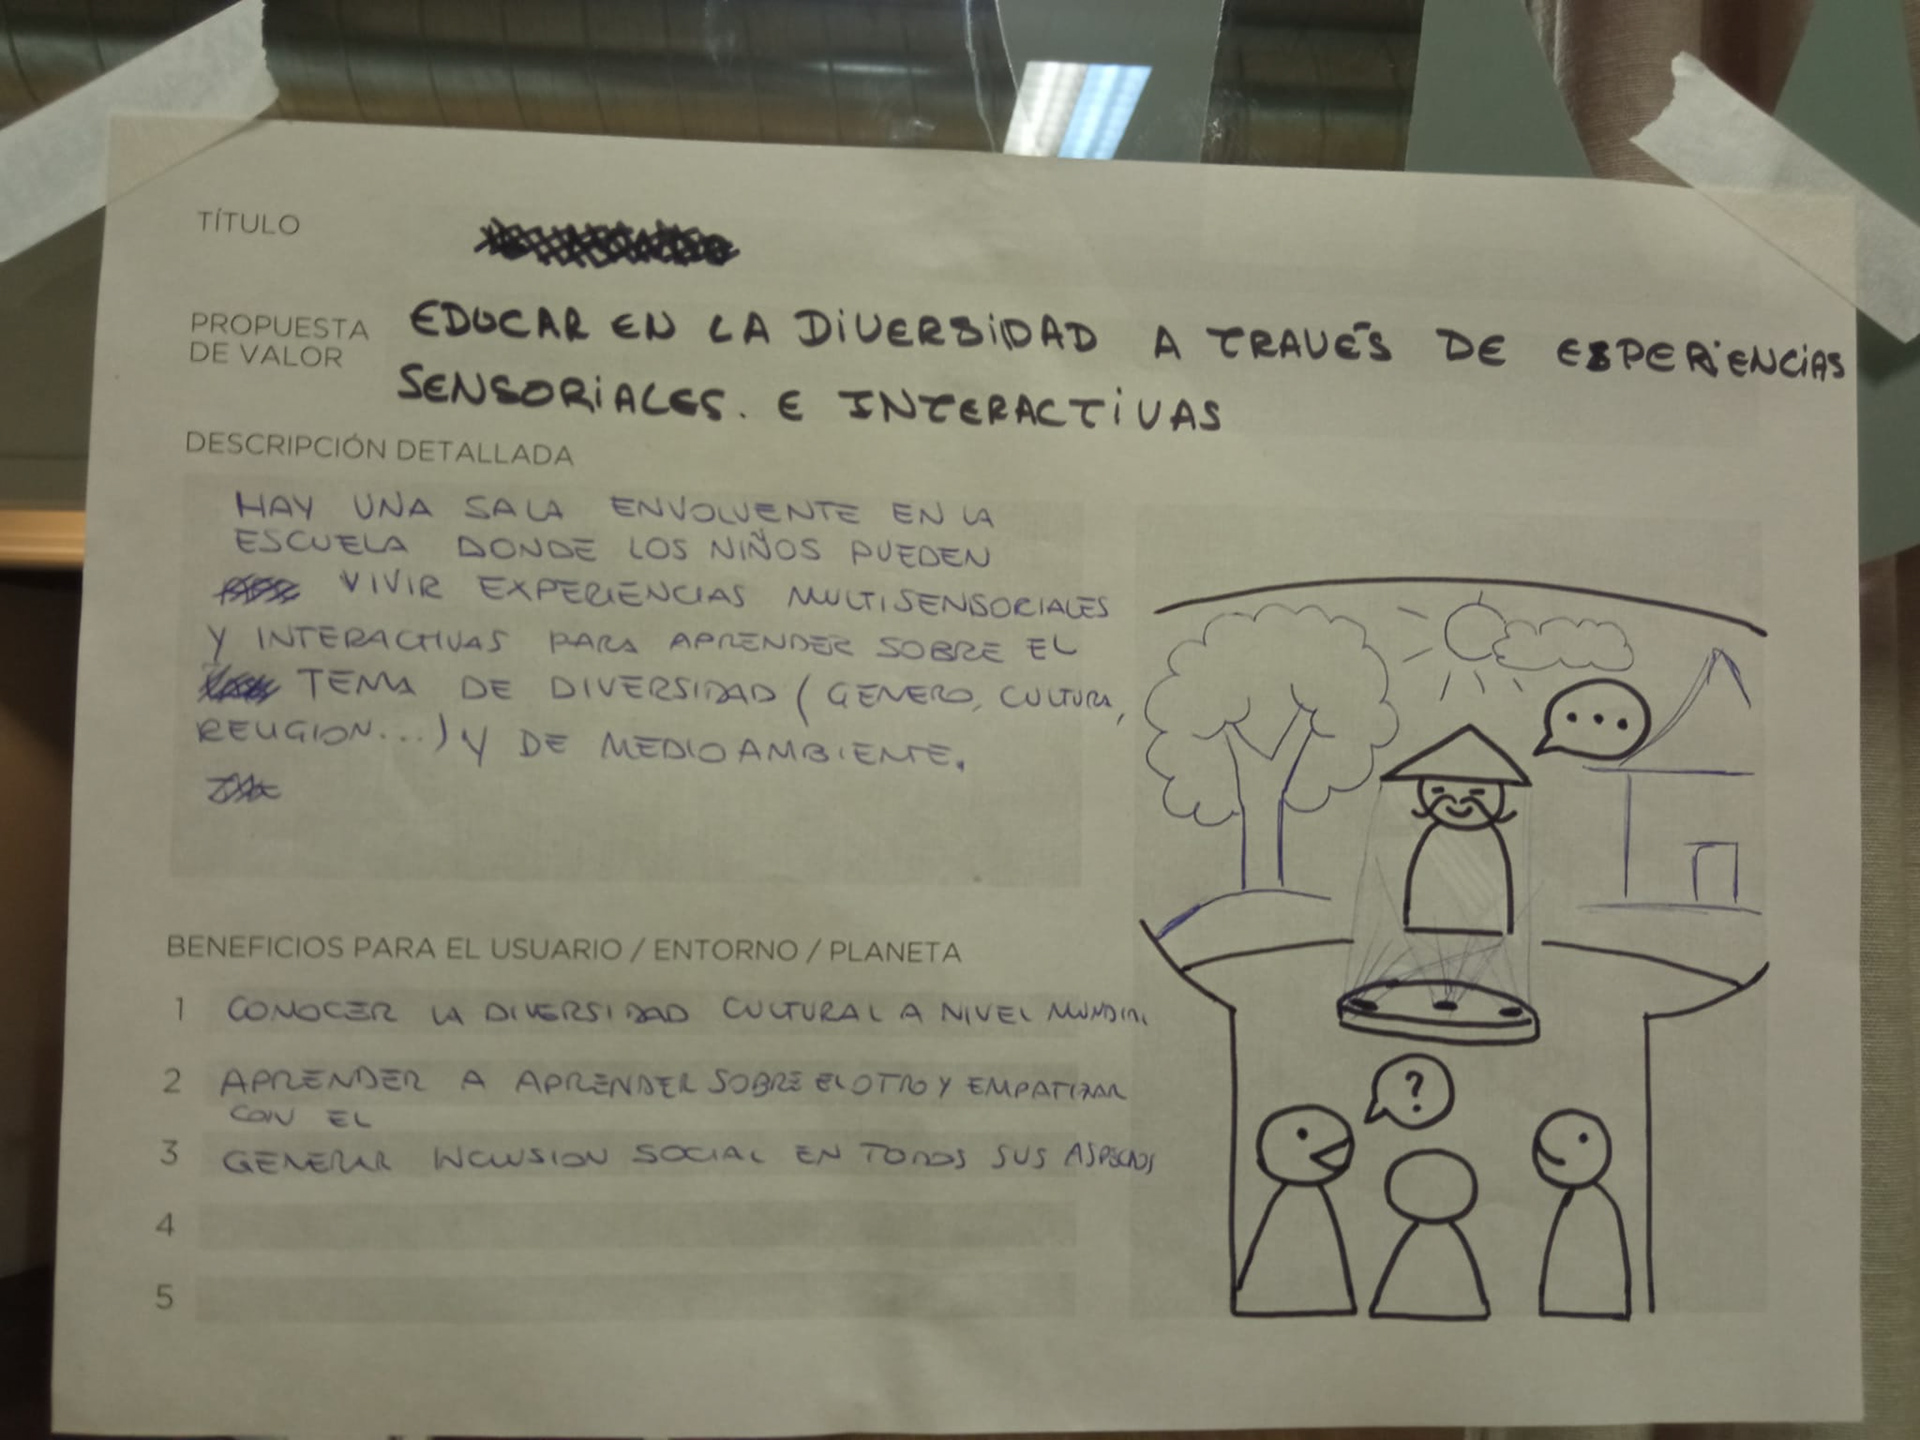 TÍTULO
PROPUESTA
DE VALOR
EDUCAR EN LA DIVERSIDAD A TRAVÉS DE ESPERIENCIAS
SENSORIALES. E INTERACTIVAS
DESCRIPCIÓN DETALLADA
HAY UNA SALA ENVOLVENTE EN LA
ESCUELA DONDE LOS NIÑOS PUEDEN
VIVIR EXPERIENCIAS MULTISENSORIALES
Y INTERACTIVAS PARA APRENDER SOBRE EL
TEMA DE DIVERSIDAD (GENERO, CULTURA,
RELIGION...) Y DE MEDIOAMBIENTE.
...
?
BENEFICIOS PARA EL USUARIO / ENTORNO / PLANETA
1 CONOCER LA DIVERSIDAD CULTURAL A NIVEL MUNDIAL
2 APRENDER A APRENDER SOBRE EL OTRO Y EMPATIZAR
CON EL
3 GENERAR INCLUSION SOCIAL EN TODOS SUS ASPECTOS
4
5